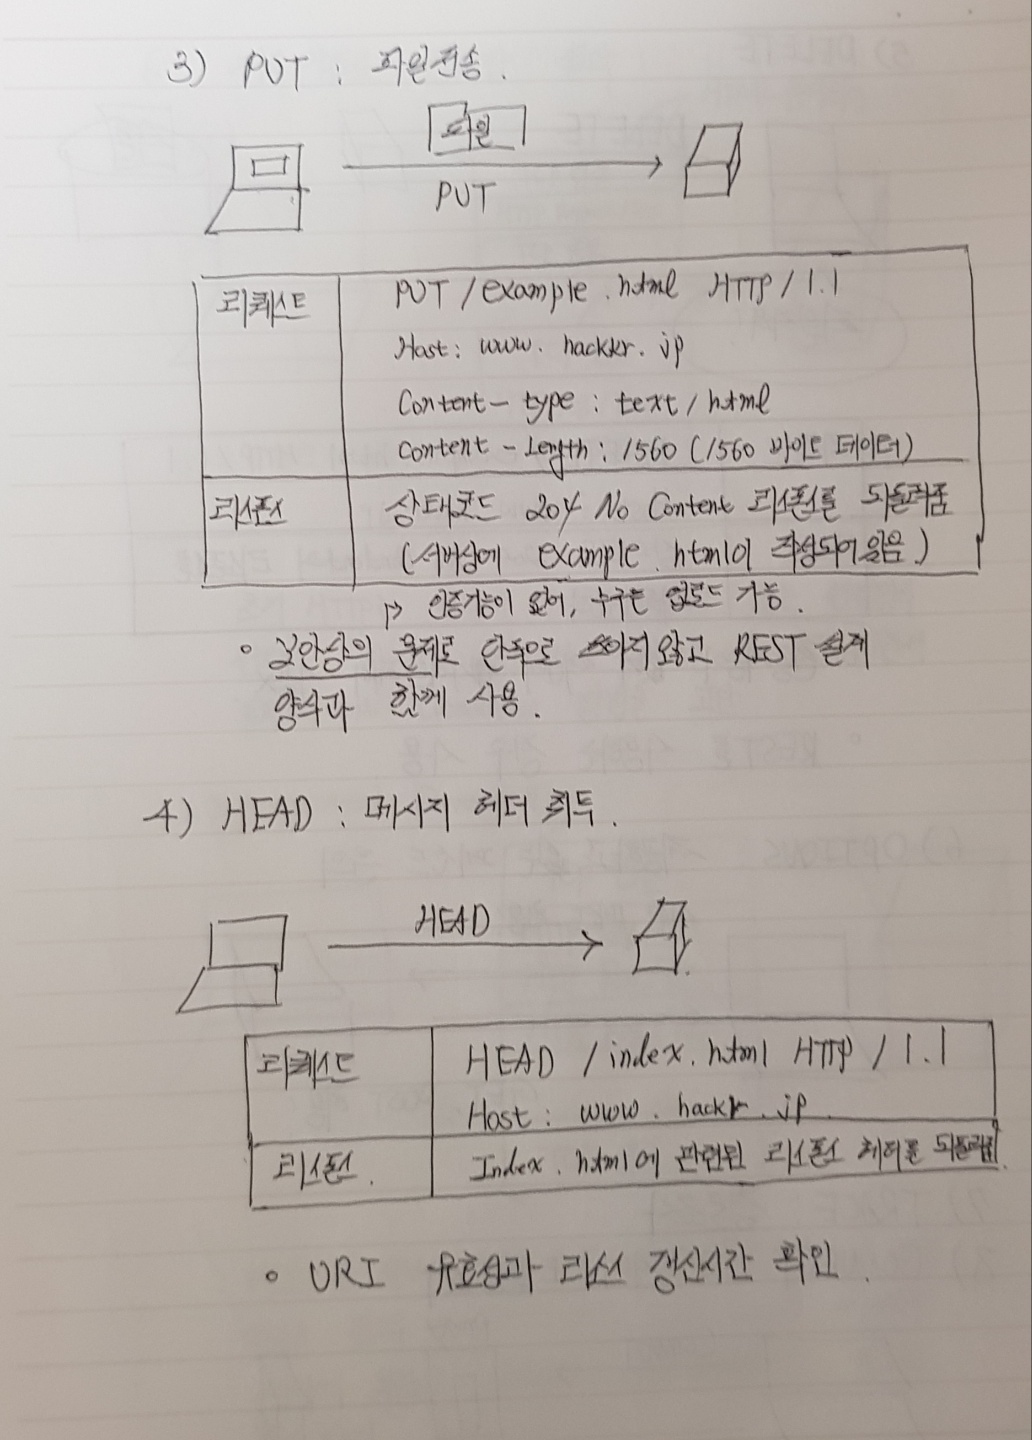 3) PUT : 파일전송.
파일
PUT
리퀘스트
PUT /example.html HTTP/1.1
Host: www.hackkr.jp
Content-type : text/html
Content-Length: 1560 (1560 바이트 데이터)
리스폰스
상태코드 204 No Content 리스폰스를 되돌려줌
(서버상에 example.html이 작성되어있음)
↳ 인증기능이 없어, 누구든 업로드 가능.
• 보안상의 문제로 단독으로 쓰이지 않고 REST 설계
양식과 함께 사용.
4) HEAD : 메시지 헤더 취득.
HEAD
리퀘스트
HEAD /index.html HTTP/1.1
Host: www.hackr.jp.
리스폰스.
Index.html에 관련된 리스폰스 헤더를 되돌려줌
• URI 유효성과 리소스 갱신시간 확인.